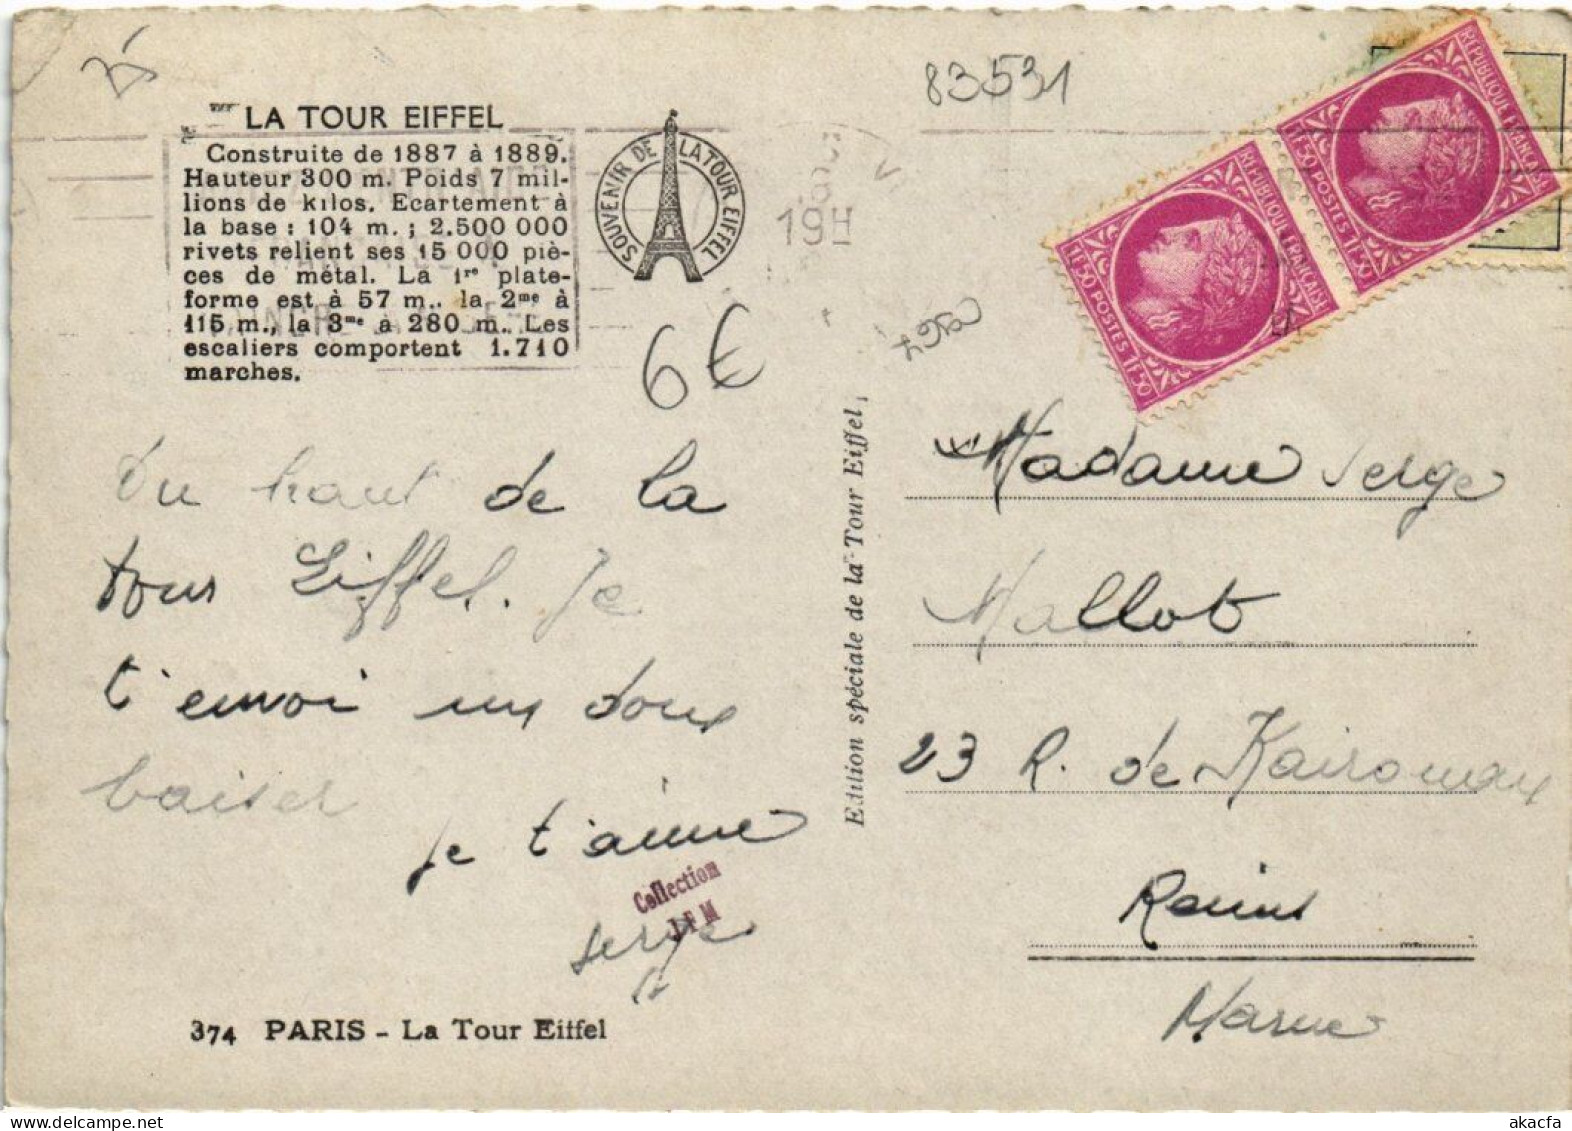 83531
LA TOUR EIFFEL
Construite de 1887 à 1889.
Hauteur 300 m. Poids 7 mil-
lions de kilos. Ecartement à
la base : 104 m. ; 2.500 000
rivets relient ses 15 000 piè-
ces de métal. La 1re plate-
forme est à 57 m., la 2me à
115 m., la 3me à 280 m. Les
escaliers comportent 1.710
marches.
SOUVENIR DE LA TOUR EIFFEL
19H
6€
REPUBLIQUE FRANÇAISE
1F50 POSTES 1F50
REPUBLIQUE FRANÇAISE
1F50 POSTES 1F50
Du haut de la
tour Eiffel. Je
t'envoi un doux
baiser
je t'aime
Serge
Collection
Edition spéciale de la Tour Eiffel
Madame Serge
Mallot
23 R. de Kairouan
Reims
Marne
374 PARIS - La Tour Eiffel
akpool.com
akacfa